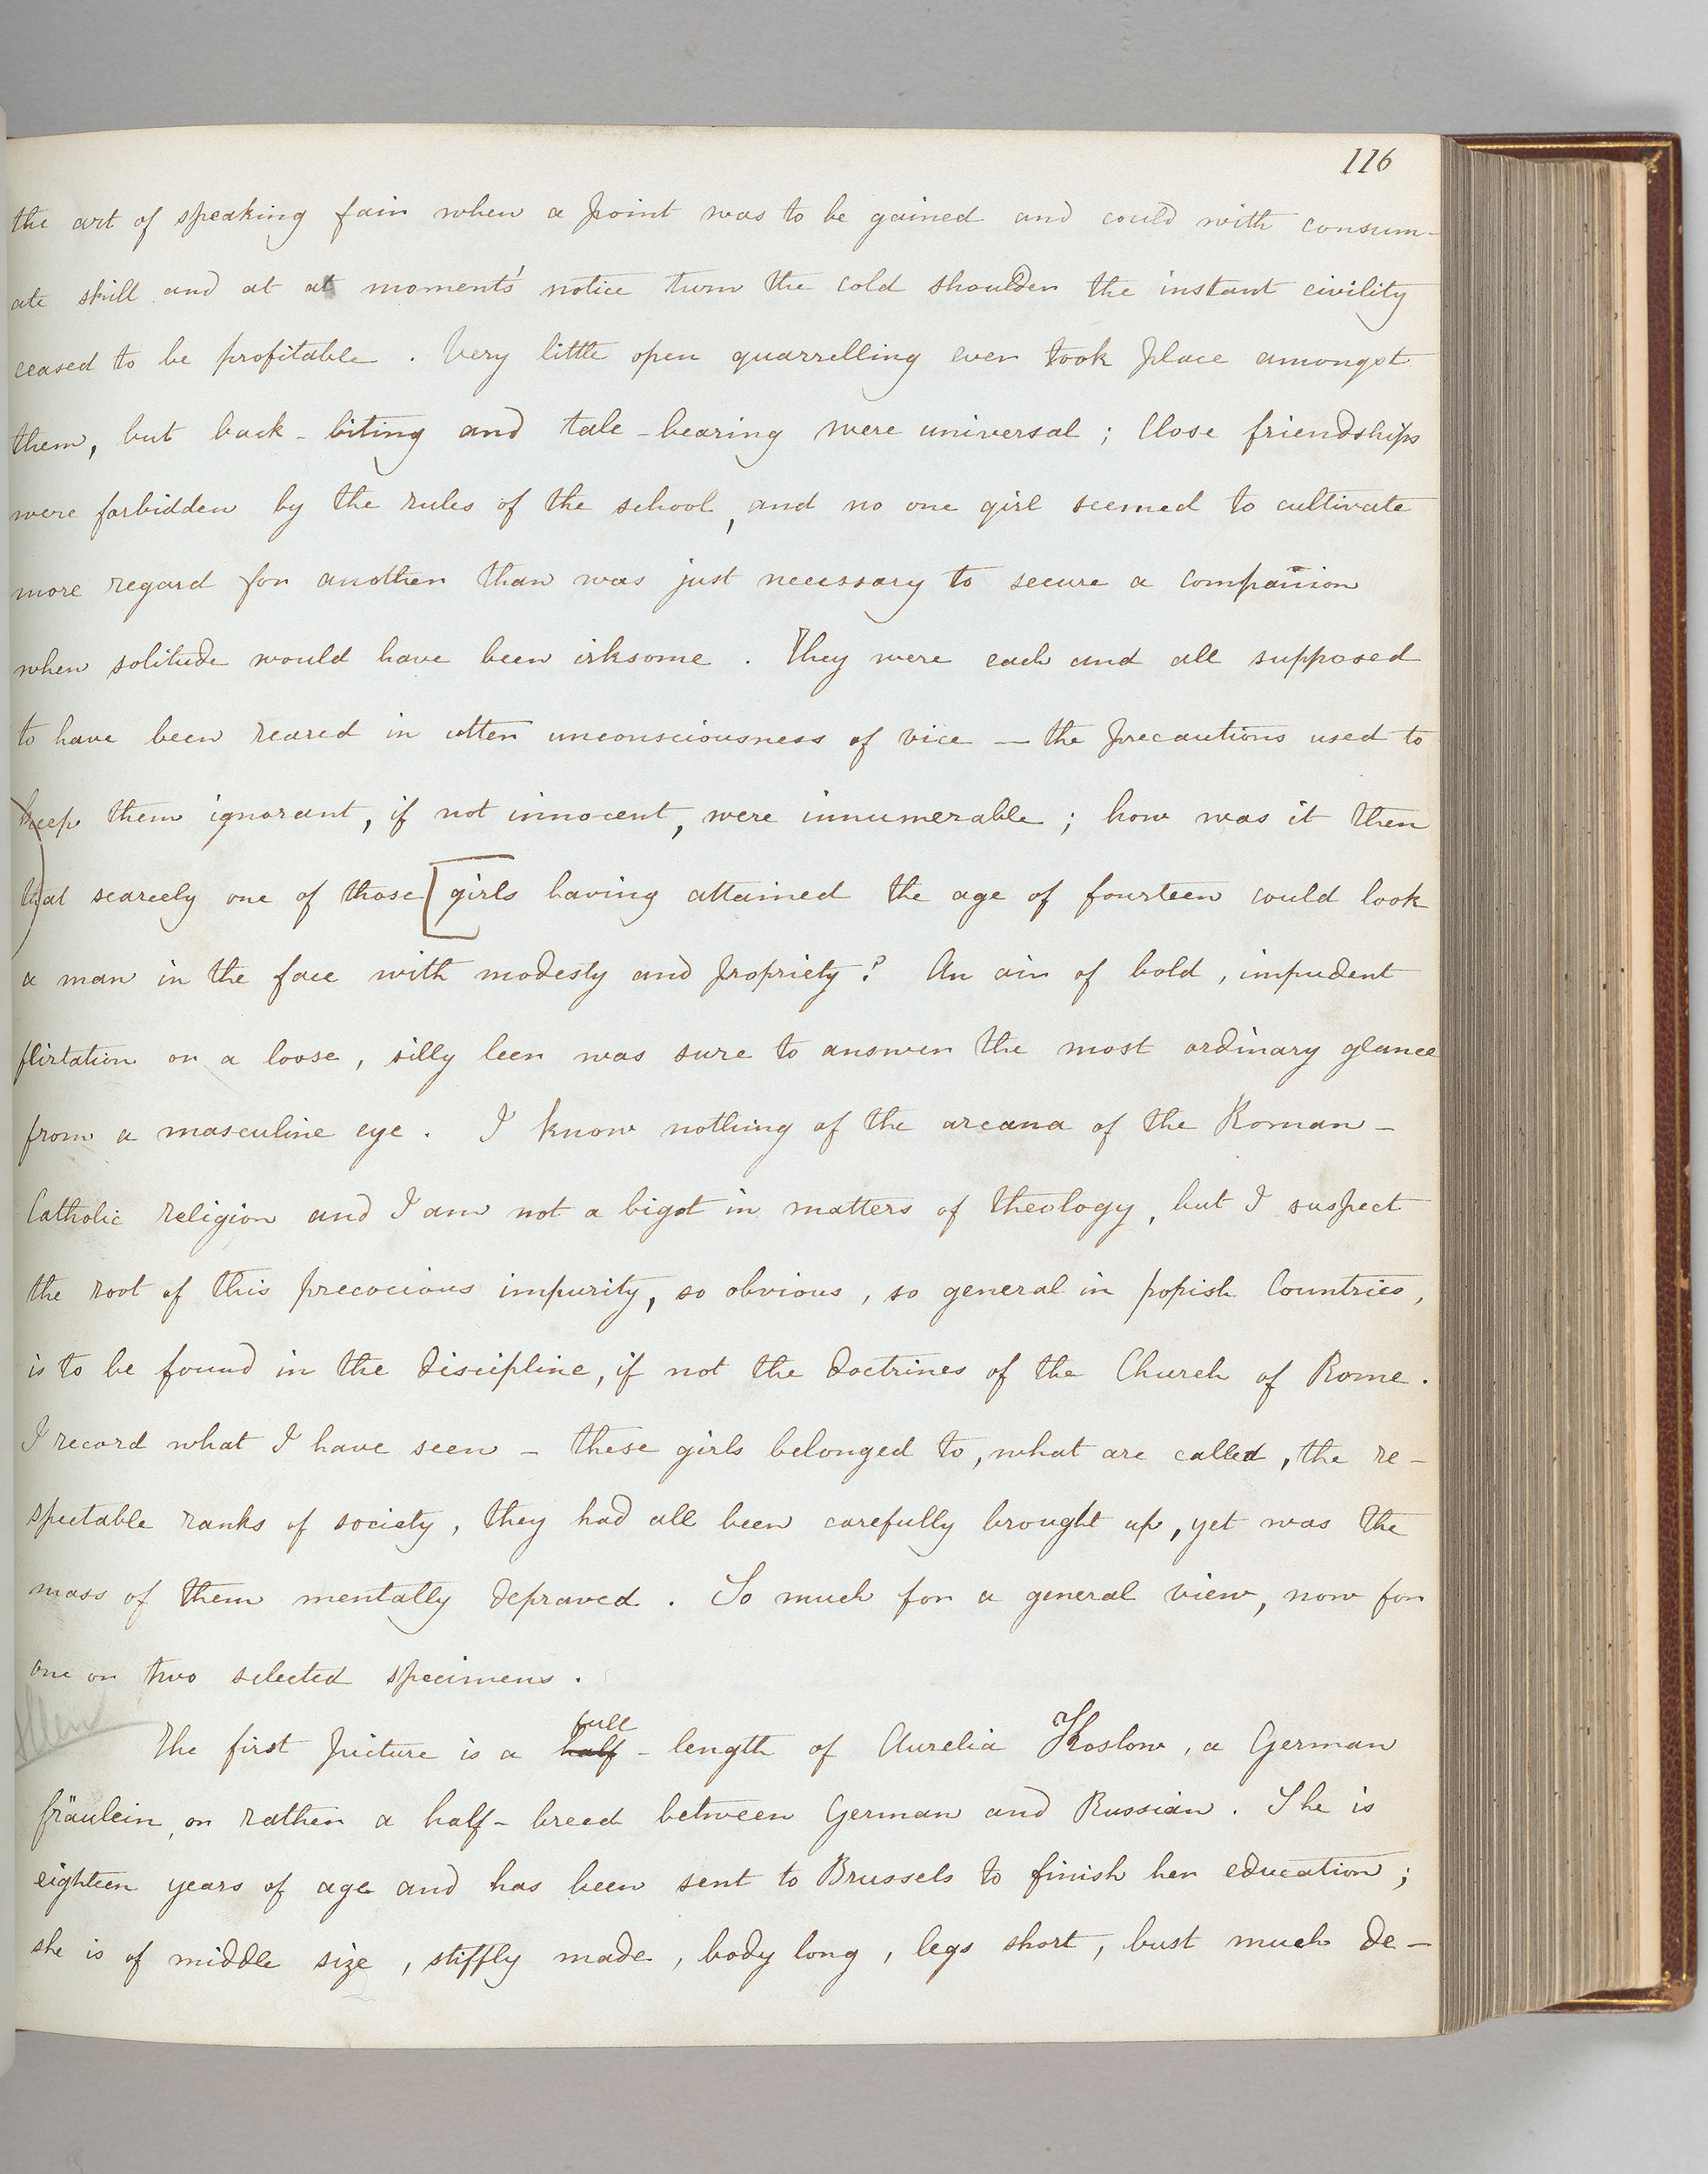 116
the art of speaking fair when a point was to be gained and could with consum-
ate skill and at at moment's notice turn the cold shoulder the instant civility
ceased to be profitable. Very little open quarrelling ever took place amongst
them, but back-biting and tale-bearing were universal; Close friendships
were forbidden by the rules of the school, and no one girl seemed to cultivate
more regard for another than was just necessary to secure a companion
when solitude would have been irksome. They were each and all supposed
to have been reared in utter unconsciousness of vice — the precautions used to
keep them ignorant, if not innocent, were innumerable; how was it then
that scarcely one of those [girls having attained the age of fourteen could look
a man in the face with modesty and propriety? An air of bold, impudent
flirtation or a loose, silly leer was sure to answer the most ordinary glance
from a masculine eye. I know nothing of the arcana of the Roman-
Catholic religion and I am not a bigot in matters of theology, but I suspect
the root of this precocious impurity, so obvious, so general in popish Countries,
is to be found in the discipline, if not the doctrines of the Church of Rome.
I record what I have seen - these girls belonged to, what are called, the re-
spectable ranks of society, they had all been carefully brought up, yet was the
mass of them mentally depraved. So much for a general view, now for
one or two selected specimens.
Allen
The first picture is a half full-length of Aurelia Koslow, a German
fräulein, or rather a half-breed between German and Russian. She is
eighteen years of age and has been sent to Brussels to finish her education;
she is of middle size, stiffly made, body long, legs short, bust much de-